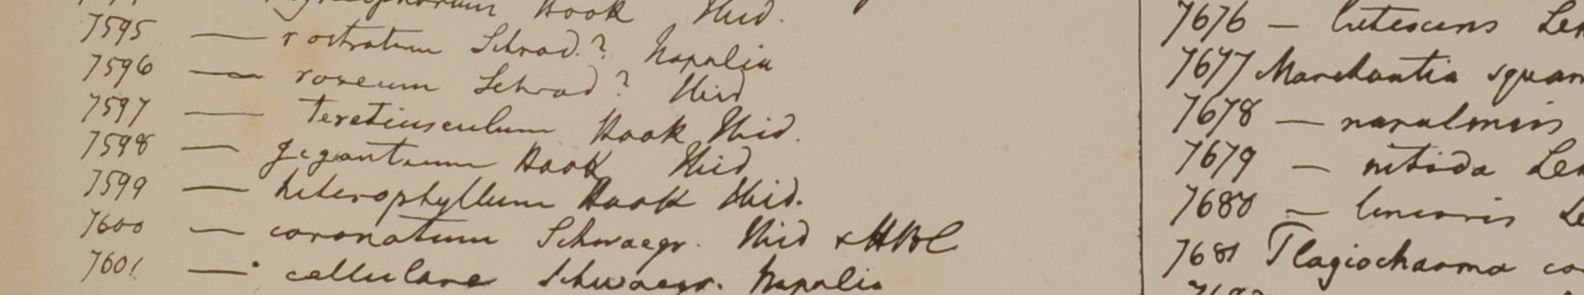 Hook Ibid.
7595 — rostratum Schrad.? Napalia
7596 — roseum Schrad? Ibid
7597 — teretiusculum Hook Ibid.
7598 — giganteum Hook Ibid
7599 — heterophyllum Hook Ibid.
7600 — coronatum Schwaegr. Ibid & HBC
7601 — cellulare Schwaegr. Napalia
7676 — lutescens Le
7677 Marchantia squam
7678 — napalensis
7679 — nitida Le
7680 — linearis Le
7681 Plagiochasma co